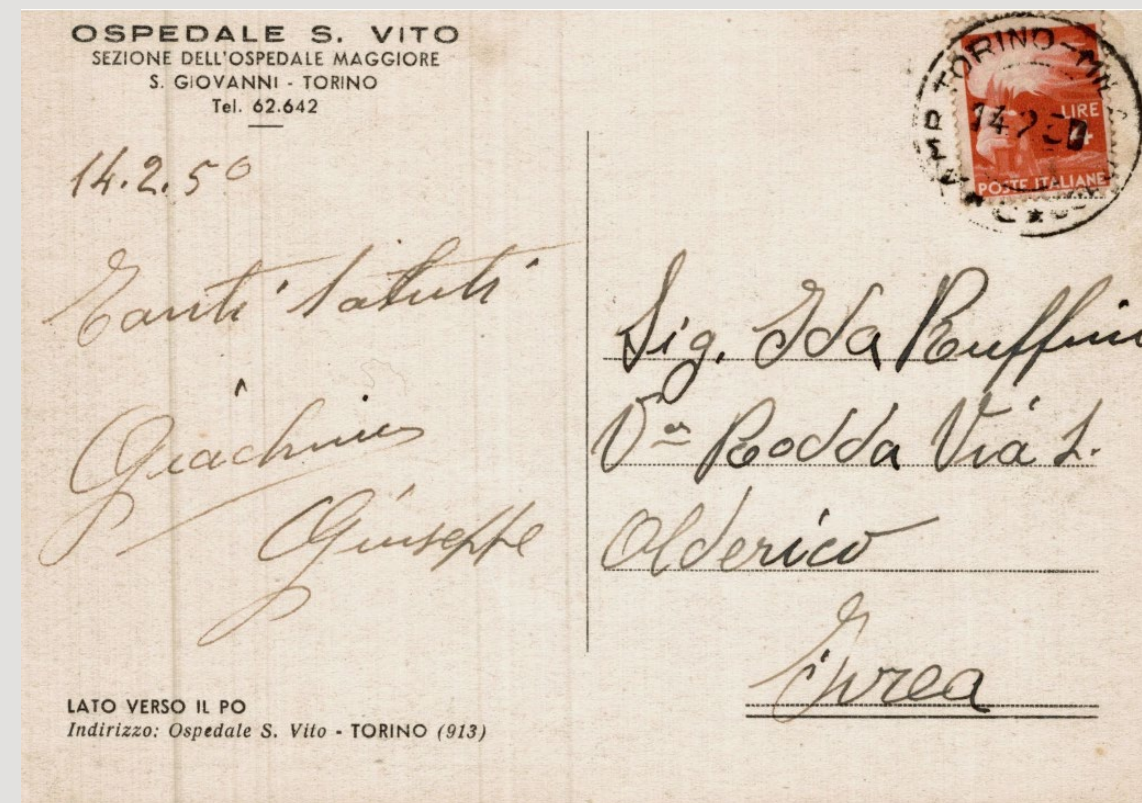 OSPEDALE S. VITO
SEZIONE DELL'OSPEDALE MAGGIORE
S. GIOVANNI - TORINO
Tel. 62.642
14.2.50
Tanti saluti
Giachino
Giuseppe
LATO VERSO IL PO
Indirizzo: Ospedale S. Vito - TORINO (913)
TORINO-MIL
14 2 50
LIRE
4
POSTE ITALIANE
Sig. Ida Ruffini
Va Rodda Via S.
Olderico
Ivrea